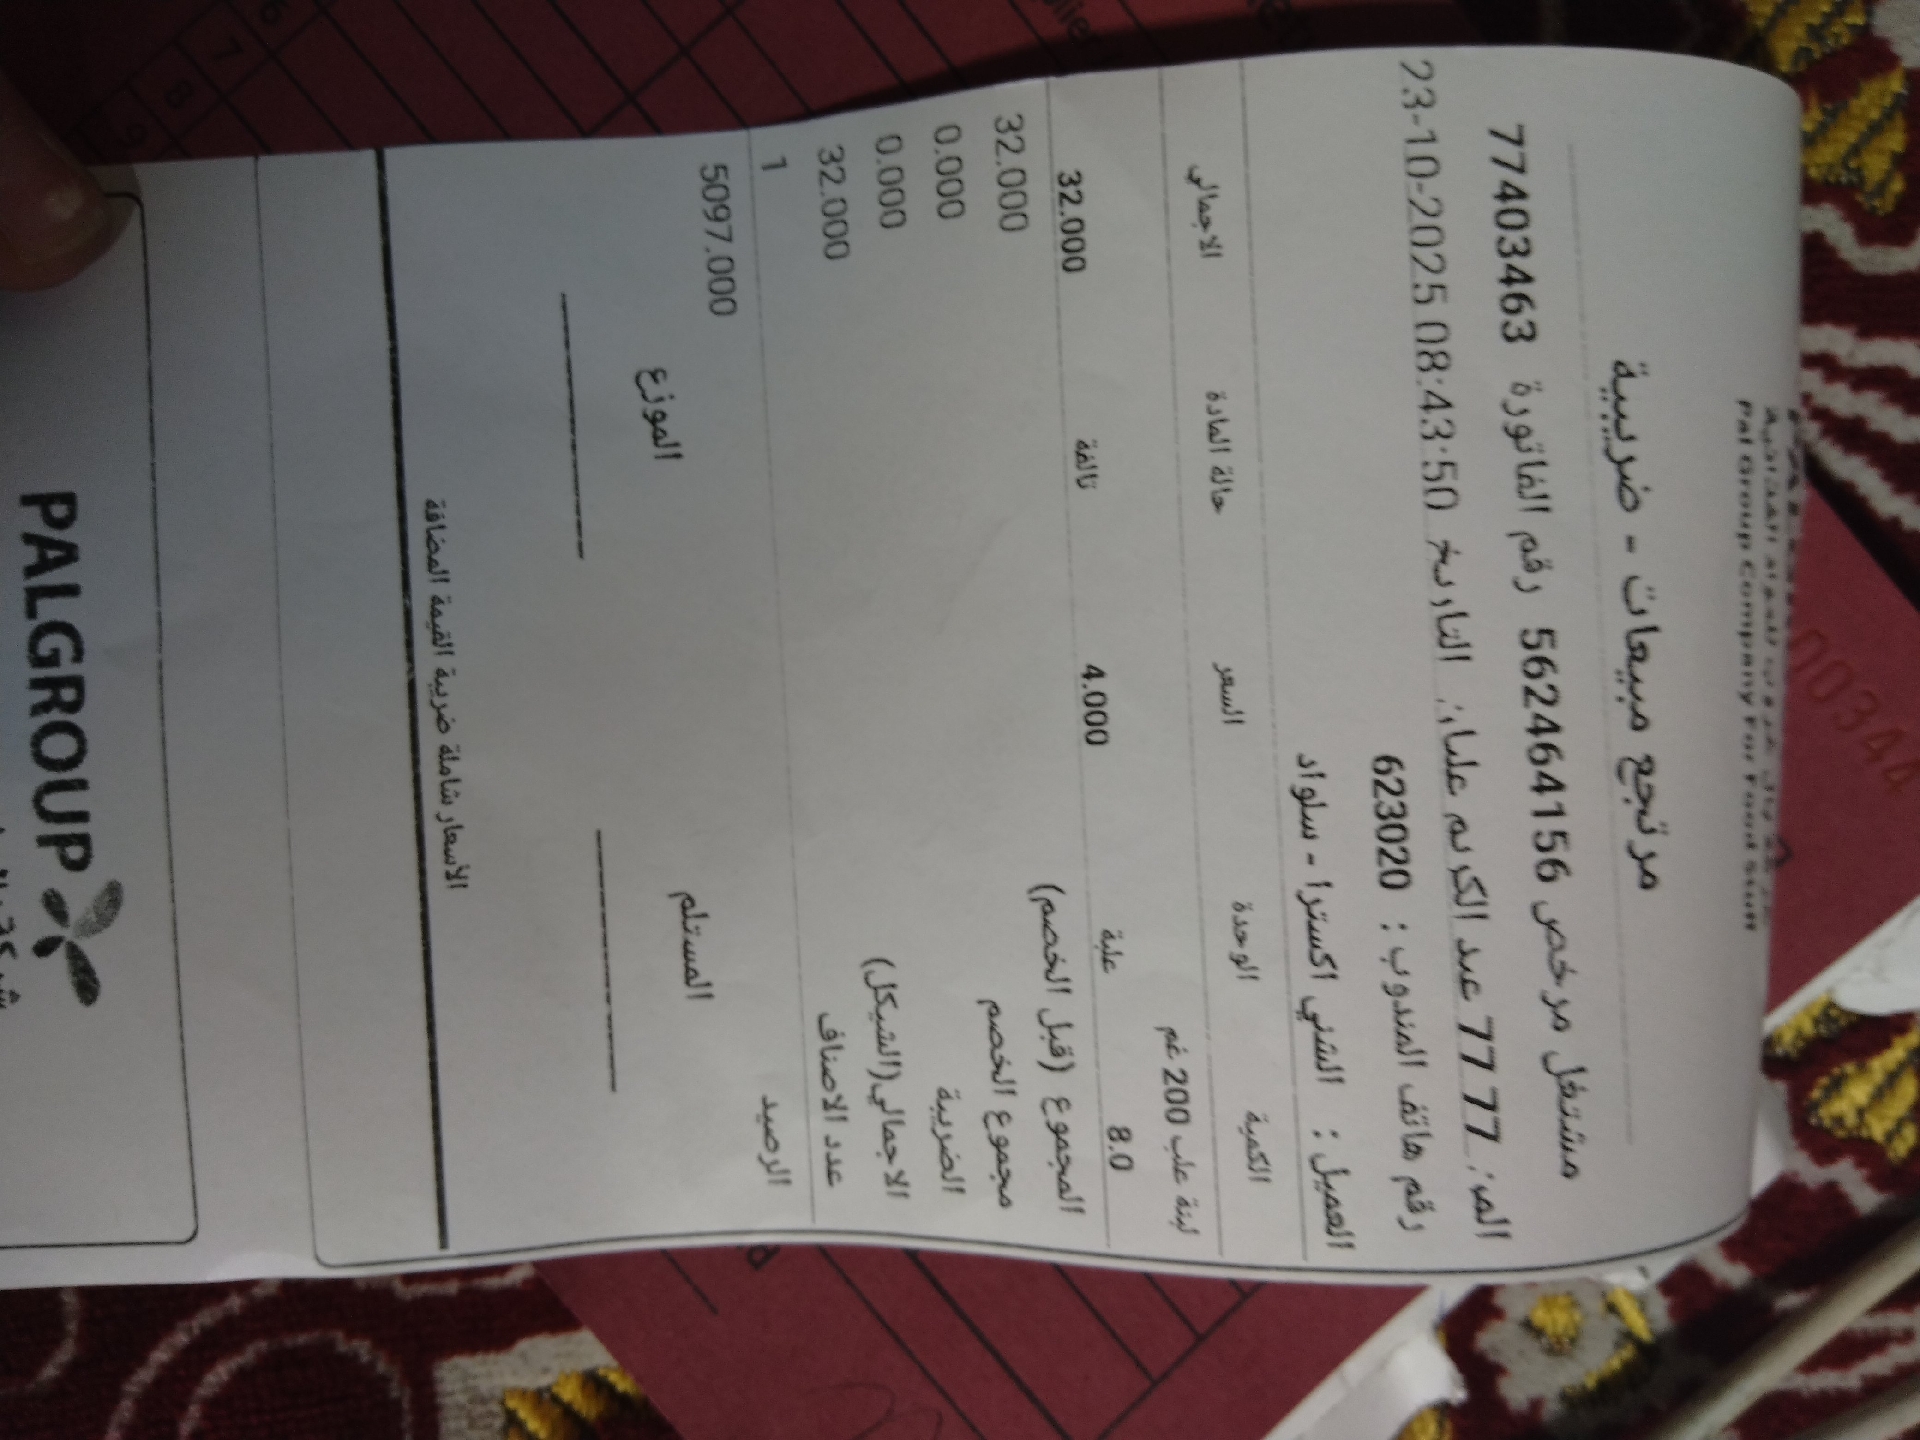 Pal Group Company For Food Stuff
مرتجع مبيعات - ضريبية
مشتغل مرخص 562464156 رقم الفاتورة 77403463
77 77 عبد الكريم عليان التاريخ 23-10-2025 08:43:50
رقم هاتف المندوب : 623020
العميل : الشني اكسترا - سلواد
الكمية الوحدة السعر حالة المادة الاجمالي
لبنة علب 200 غم
8.0 علبة 4.000 تالفة 32.000
المجموع (قبل الخصم) 32.000
مجموع الخصم 0.000
الضريبة 0.000
الاجمالي(الشيكل) 32.000
عدد الاصناف 1
الرصيد 5097.000
المستلم الموزع
الأسعار شاملة ضريبة القيمة المضافة
PALGROUP
00344
6
7
8
9